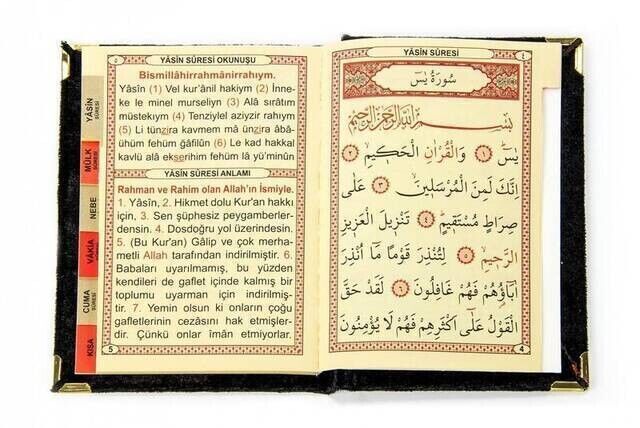 ٥
YÂSÎN SÛRESİ OKUNUŞU
Bismillâhirrahmânirrahıym.
Yâsîn (1) Vel kur'ânil hakiym (2) İnne-
ke le minel murseliyn (3) Alâ sırâtım
müstekıym (4) Tenziylel aziyzir rahıym
(5) Li tünzira kavmem mâ ünzira âbâ-
ühüm fehüm ğâfilûn (6) Le kad hakkal
kavlü alâ ekserihim fehüm lâ yü'minûn
YÂSÎN SÛRESİ ANLAMI
Rahman ve Rahim olan Allah'ın İsmiyle.
1. Yâsîn, 2. Hikmet dolu Kur'an hakkı
için, 3. Sen şüphesiz peygamberler-
densin. 4. Dosdoğru yol üzerindesin.
5. (Bu Kur'an) Gâlip ve çok merha-
metli Allah tarafından indirilmiştir. 6.
Babaları uyarılmamış, bu yüzden
kendileri de gaflet içinde kalmış bir
toplumu uyarman için indirilmiş-
tir. 7. Yemin olsun ki onların çoğu
gafletlerinin cezâsını hak etmişler-
dir. Çünkü onlar îman etmiyorlar.
5
YÂSİN
SÛRESİ
MÜLK
SÛRESİ
NEBE
VÂKIA
SÛRESİ
CUMA
SÛRESİ
KISA
YÂSÎN SÛRESİ
٤
سُورَةُ يٰسٓ
بِسْمِ اللّٰهِ الرَّحْمٰنِ الرَّحِيمِ
يٰسٓ ﴿١﴾ وَالْقُرْاٰنِ الْحَكِيمِ ﴿٢﴾
اِنَّكَ لَمِنَ الْمُرْسَلِينَ ﴿٣﴾ عَلٰى
صِرَاطٍ مُسْتَقِيمٍ ﴿٤﴾ تَنْزِيلَ الْعَزِيزِ
الرَّحِيمِ ﴿٥﴾ لِتُنْذِرَ قَوْمًا مَٓا اُنْذِرَ
اٰبَٓاؤُهُمْ فَهُمْ غَافِلُونَ ﴿٦﴾ لَقَدْ حَقَّ
الْقَوْلُ عَلٰٓى اَكْثَرِهِمْ فَهُمْ لَا يُؤْمِنُونَ
4